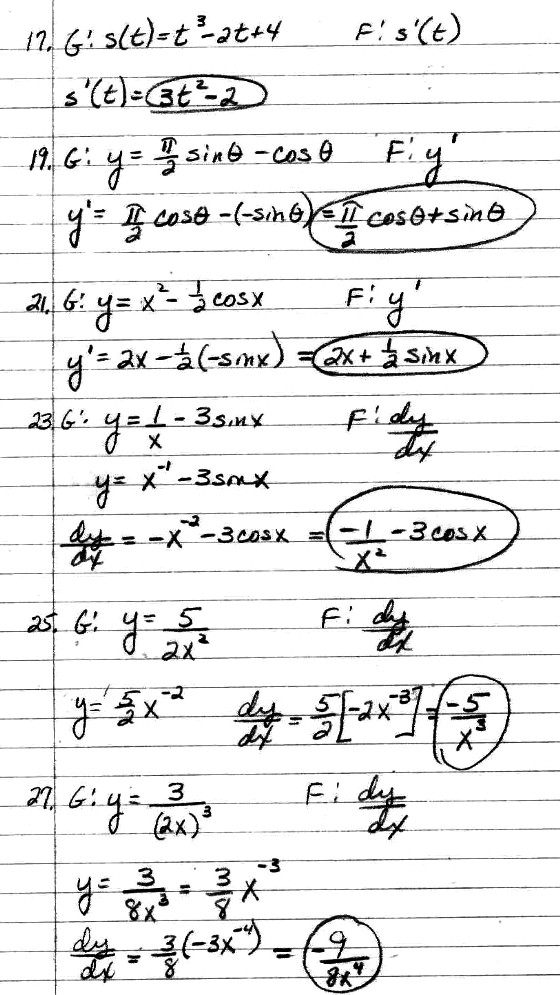 17. G: s(t)=t³-2t+4 F: s'(t)
s'(t)=3t²-2
19. G: y = π/2 sinθ - cosθ F: y'
y' = π/2 cosθ - (-sinθ) = π/2 cosθ + sinθ
21. G: y = x² - 1/2 cosx F: y'
y' = 2x - 1/2(-sinx) = 2x + 1/2 sinx
23. G: y = 1/x - 3sinx F: dy/dx
y = x⁻¹ - 3sinx
dy/dx = -x⁻² - 3cosx = -1/x² - 3cosx
25. G: y = 5/2x² F: dy/dx
y = 5/2 x⁻² dy/dx = 5/2[-2x⁻³] = -5/x³
27. G: y = 3/(2x)³ F: dy/dx
y = 3/8x³ = 3/8 x⁻³
dy/dx = 3/8(-3x⁻⁴) = -9/8x⁴